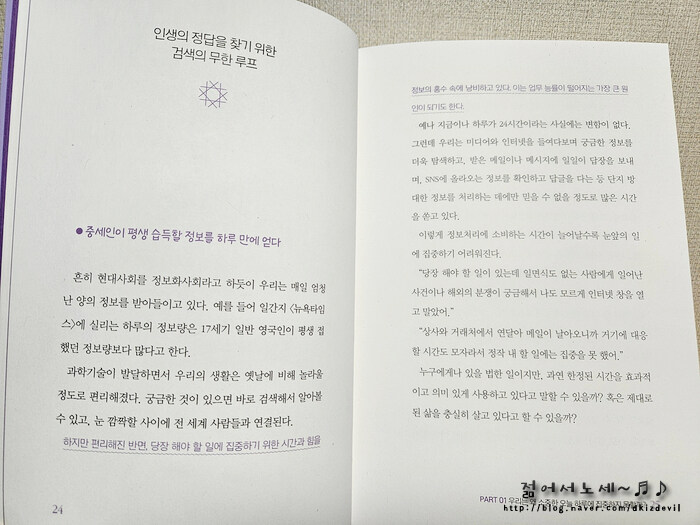 인생의 정답을 찾기 위한
검색의 무한 루프
● 중세인이 평생 습득할 정보를 하루 만에 얻다
흔히 현대사회를 정보화사회라고 하듯이 우리는 매일 엄청
난 양의 정보를 받아들이고 있다. 예를 들어 일간지 〈뉴욕타임
스〉에 실리는 하루의 정보량은 17세기 일반 영국인이 평생 접
했던 정보량보다 많다고 한다.
과학기술이 발달하면서 우리의 생활은 옛날에 비해 놀라울
정도로 편리해졌다. 궁금한 것이 있으면 바로 검색해서 알아볼
수 있고, 눈 깜짝할 사이에 전 세계 사람들과 연결된다.
하지만 편리해진 반면, 당장 해야 할 일에 집중하기 위한 시간과 힘을
24
정보의 홍수 속에 낭비하고 있다. 이는 업무 능률이 떨어지는 가장 큰 원
인이 되기도 한다.
예나 지금이나 하루가 24시간이라는 사실에는 변함이 없다.
그런데 우리는 미디어와 인터넷을 들여다보며 궁금한 정보를
더욱 탐색하고, 받은 메일이나 메시지에 일일이 답장을 보내
며, SNS에 올라오는 정보를 확인하고 답글을 다는 등 단지 방
대한 정보를 처리하는 데에만 믿을 수 없을 정도로 많은 시간
을 쏟고 있다.
이렇게 정보처리에 소비하는 시간이 늘어날수록 눈앞의 일
에 집중하기 어려워진다.
“당장 해야 할 일이 있는데 일면식도 없는 사람에게 일어난
사건이나 해외의 분쟁이 궁금해서 나도 모르게 인터넷 창을 열
고 말았어.”
“상사와 거래처에서 연달아 메일이 날아오니까 거기에 대응
할 시간도 모자라서 정작 내 할 일에는 집중을 못 했어.”
누구에게나 있을 법한 일이지만, 과연 한정된 시간을 효과적
이고 의미 있게 사용하고 있다고 말할 수 있을까? 혹은 제대로
된 삶을 충실히 살고 있다고 할 수 있을까?
PART 01 우리는 왜 소중한 오늘 하루에 집중하지 못할까? 25
젊어서노세~♬♪
http://blog.naver.com/dkizdevil